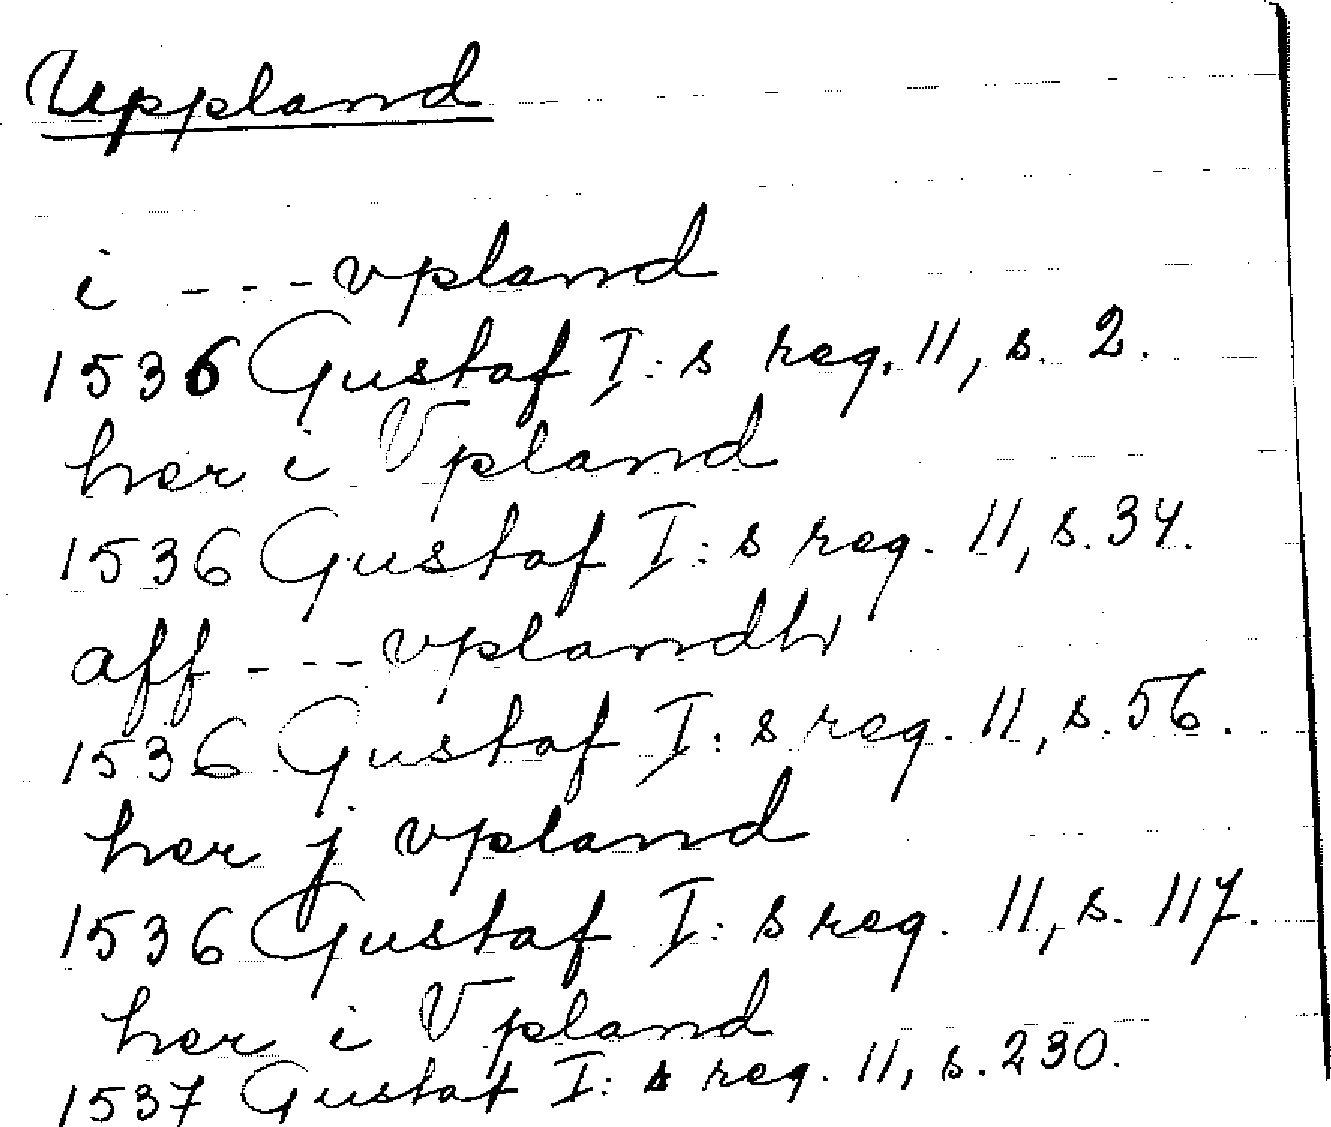 Uppland
i - - - vpland
1536 Gustaf I:s reg. 11, s. 2.
her i Vpland
1536 Gustaf I:s reg. 11, s. 34.
aff - - - vplandh
1536 Gustaf I:s reg. 11, s. 56.
her j vpland
1536 Gustaf I:s reg. 11, s. 117.
her i Vpland
1537 Gustaf I:s reg. 11, s. 230.